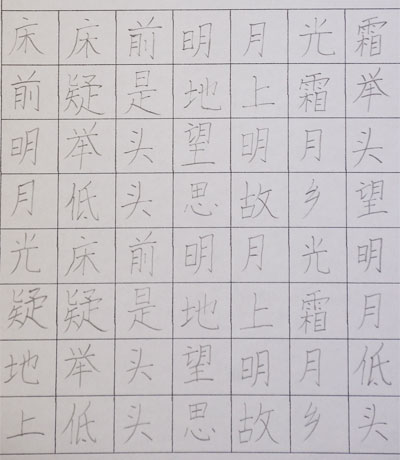 床床前明月光霜
前疑是地上霜举
明举头望明月头
月低头思故乡望
光床前明月光明
疑疑是地上霜月
地举头望明月低
上低头思故乡头